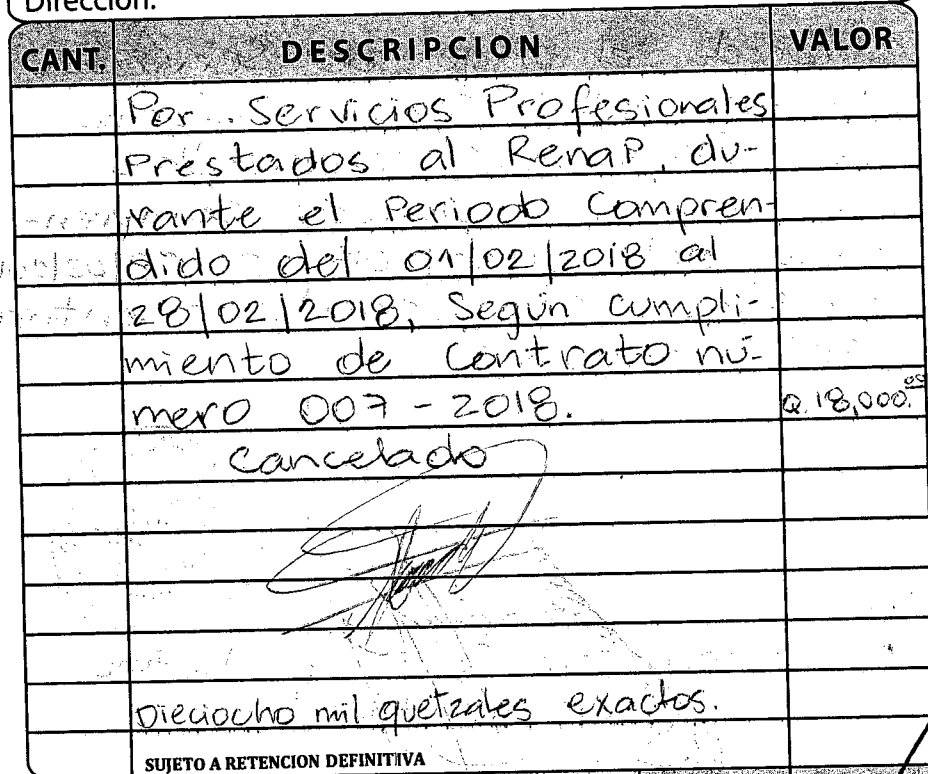 Dirección:
CANT. DESCRIPCION VALOR
Por Servicios Profesionales
Prestados al Renap, du-
rante el Periodo Compren-
dido del 01/02/2018 al
28/02/2018, Según cumpli-
miento de Contrato nú-
mero 007-2018. Q.18,000.00
Cancelado
Dieciocho mil quetzales exactos.
SUJETO A RETENCION DEFINITIVA